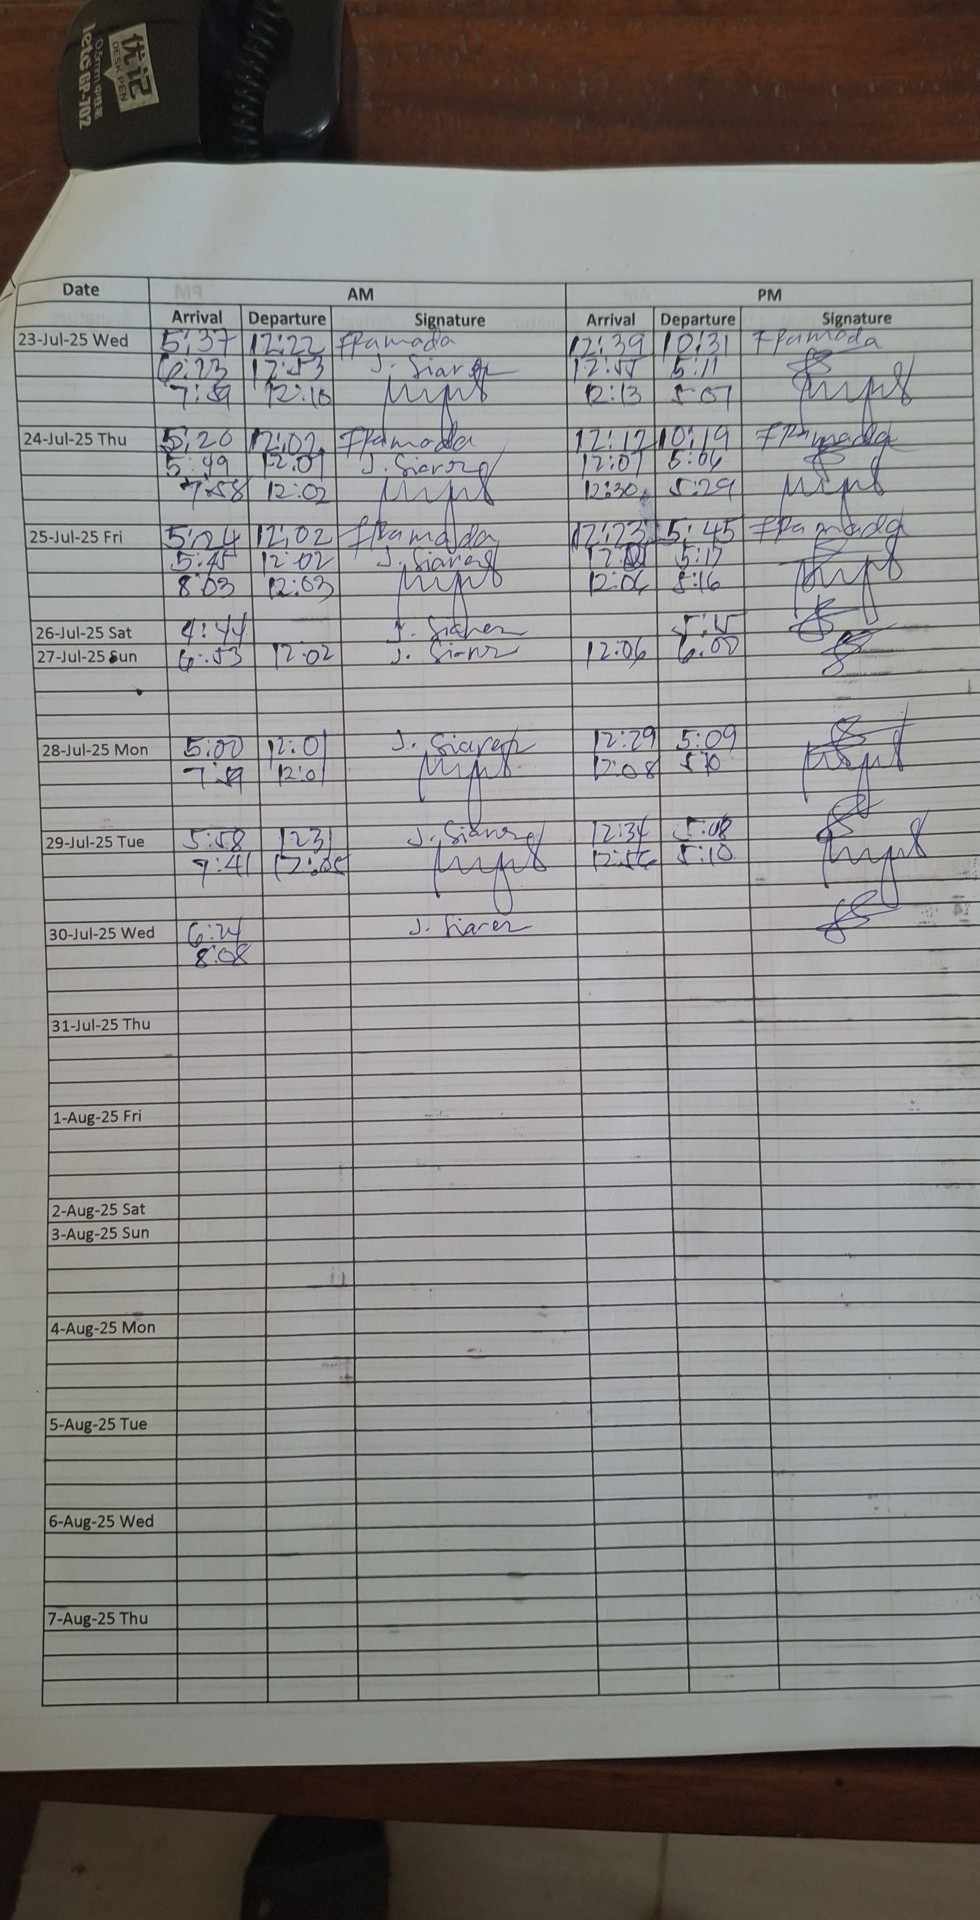 优记
DESK PEN
GP-702
Date AM PM
Arrival Departure Signature Arrival Departure Signature
23-Jul-25 Wed 5:37 12:22 FPamada 12:39 10:31 FPamada
6:23 12:53 J. Siarez 12:55 5:11
7:59 12:10 12:13 5:07
24-Jul-25 Thu 5:20 12:02 FPamada 12:12 10:19 FPamada
5:49 12:07 J. Siarez 12:07 5:06
7:58 12:02 12:30 5:29
25-Jul-25 Fri 5:24 12:02 FPamada 12:23 5:45 FPamada
5:45 12:02 J. Siarez 5:17
8:03 12:03 12:06 5:16
26-Jul-25 Sat 4:44 J. Siarez 5:15
27-Jul-25 Sun 6:53 12:02 J. Siarez 12:06 6:00
28-Jul-25 Mon 5:00 12:01 J. Siarez 12:29 5:09
7:59 12:01 12:08 5:10
29-Jul-25 Tue 5:58 1231 J. Siarez 12:34 5:08
7:41 12:05 12:56 5:10
30-Jul-25 Wed 6:24 J. Siarez
8:08
31-Jul-25 Thu
1-Aug-25 Fri
2-Aug-25 Sat
3-Aug-25 Sun
4-Aug-25 Mon
5-Aug-25 Tue
6-Aug-25 Wed
7-Aug-25 Thu